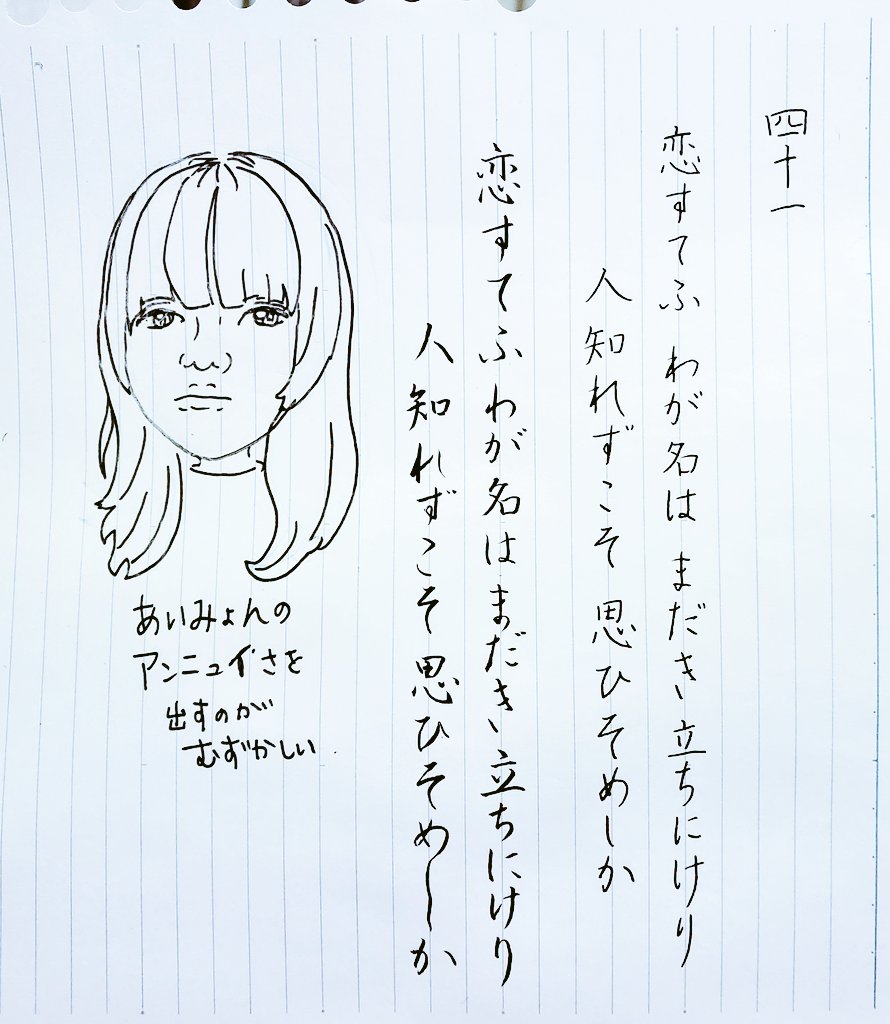 四十一
恋すてふ わが名は まだき 立ちにけり
人知れずこそ 思ひそめしか
恋すてふ わが名は まだき 立ちにけり
人知れずこそ 思ひそめしか
あいみょんの
アンニュイさを
出すのが
むずかしい